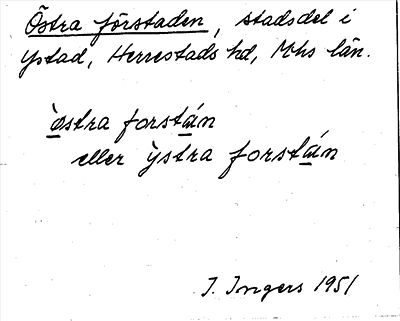 Östra förstaden, stadsdel i
Ystad, Herrestads hd, Mhs län.
östra forstán
eller ỳstra forstán
I. Ingers 1951